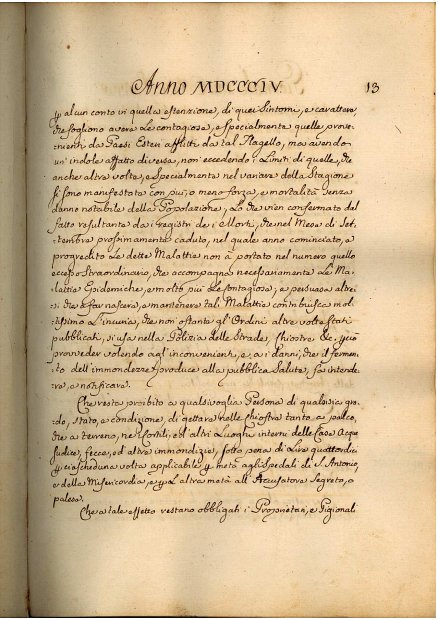 Anno MDCCCIV. 13
ꝑ alcun conto in quella estenzione, di quei Sintomi, e carattere,
che sogliono avere Le contagiose, e specialmente quelle prove-
nienti da Paesi Esteri afflitti da tal flagello, ma avendo
un' indole affatto diversa, non eccedendo i Limiti di quelle, che
anche altre volte, e specialmente nel variare della Stagione
si sono manifestate con più, o meno forza, e mortalità senza
danno notabile della Popolazione, Lo che vien confermato dal
fatto resultante dai registri dei Morti, che nel Mese di Set-
tembre prossimamente caduto, nel quale anno cominciato, e
progredito Le dette Malattie non à portato nel numero quello
eccesso straordinario, che accompagna necessariamente Le Ma-
lattie Epidemiche, e molto più Le Contagiose; e persuasa altre-
sì che a far nascere, e mantenere tali Malattie contribuisca mol-
tissimo L'incuria, che non ostante gl'Ordini altre volte stati
pubblicati, si usa nella Polizia delle Strade, Chiostre &c., ꝑciò
provveder volendo agl'inconvenienti, e ai danni, che il fermen-
to dell'immondezze produce alla pubblica Salute, fa intende-
re, e notificare.
Che resta proibito a qualsivoglia Persona di qualsisia gra-
do, stato, e condizione, di gettare nelle chiostre tanto a palco,
che a terreno, nei Cortili, ed altri Luoghi interni delle Case Acque
sudice, fecce, ed altre immondizie, sotto pena di Lire quattordici
ꝑ ciascheduna volta applicabile ꝑ metà agli spedali di S. Antonio,
e della Misericordia, e ꝑ L'altra metà all'Accusatore Segreto, o
palese.
Che a tale effetto restano obbligati i Proprietari, e Pigionali